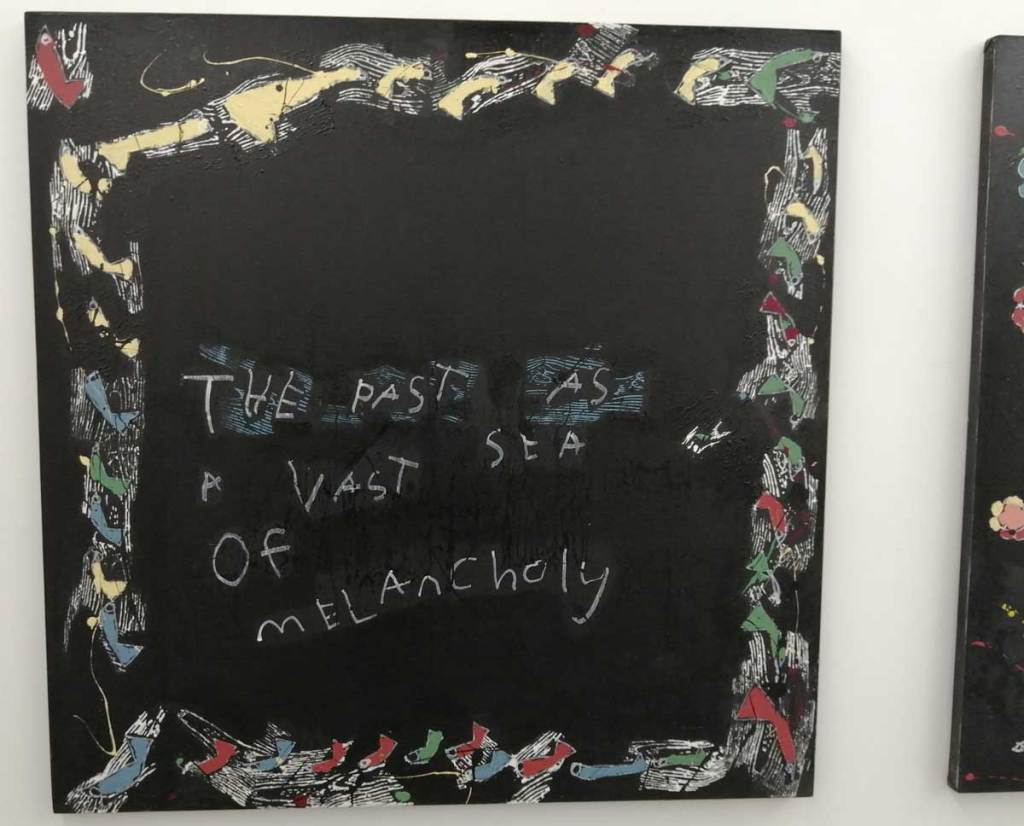 THE PAST AS
A VAST SEA
Of
mELAnCholy